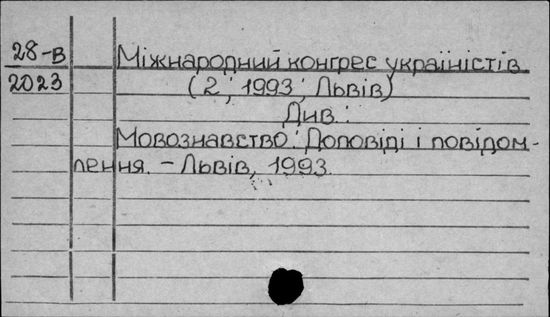 28-В
2023
Міжнародний конгрес україністів
(2; 1993; Львів)
Див.:
Мовознавство: Доповіді і повідом-
лення. - Львів, 1993.